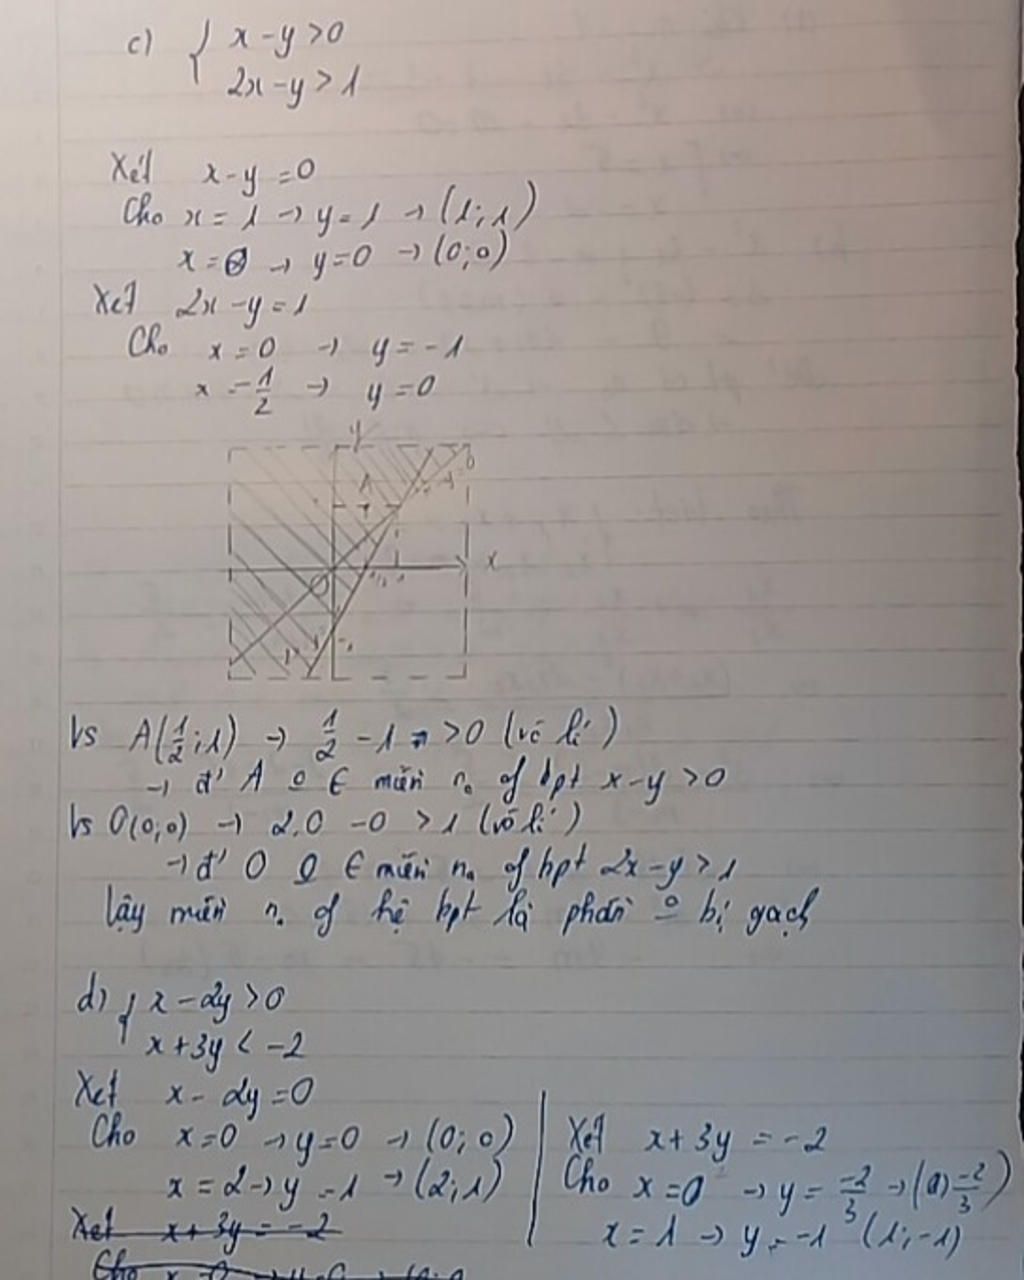 c) { x - y > 0
2x - y > 1
Xét x - y = 0
Cho x = 1 → y = 1 → (1; 1)
x = 0 → y = 0 → (0; 0)
Xét 2x - y = 1
Cho x = 0 → y = -1
x = 1/2 → y = 0
y
A
x
O 1/2 1
-1
Vs A(1/2; 1) → 1/2 - 1 > 0 (vô lí)
→ đ' A o ∈ miền no of bpt x - y > 0
Vs O(0; 0) → 2.0 - 0 > 1 (vô lí)
→ đ' O o ∈ miền no of bpt 2x - y > 1
Vậy miền n. of hệ bpt là phần o bị gạch
d) { x - 2y > 0
x + 3y < -2
Xét x - 2y = 0
Cho x = 0 → y = 0 → (0; 0)
x = 2 → y = 1 → (2; 1)
Xét x + 3y = -2
Xét x + 3y = -2
Cho x = 0 → y = -2/3 → (0; -2/3)
x = 1 → y = -1 (1; -1)